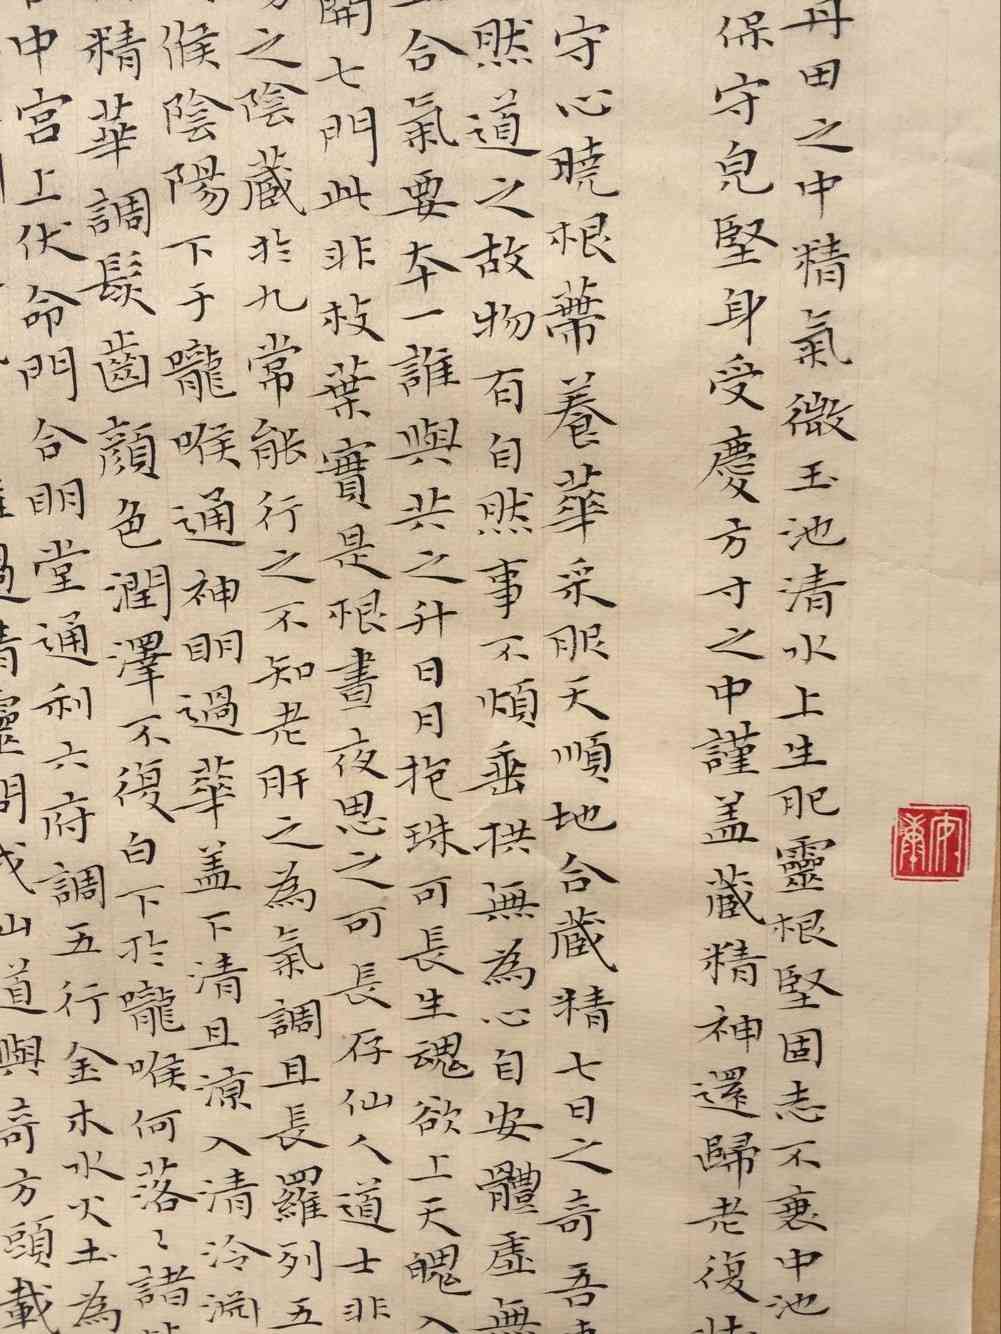 丹田之中精氣微玉池清水上生肥靈根堅固志不衰中池
保守皃堅身受慶方寸之中謹盖藏精神還歸老復
守心曉根蔕養華采服天順地合藏精七日之奇吾
然道之故物有自然事不煩垂拱無為心自安體虛無
合氣要本一誰與共之升日月抱珠可長生魂欲上天魄入
開七門此非枝葉實是根晝夜思之可長存仙人道士非
之陰藏於九常能行之不知老肝之為氣調且長羅列五
候陰陽下于嚨喉通神明過華盖下清且涼入清泠淵
精華調髮齒顏色潤澤不復白下於嚨喉何落〻諸
中宮上伏命門合明堂通利六府調五行金木水火土為
過清靈問我仙道與奇方頭載